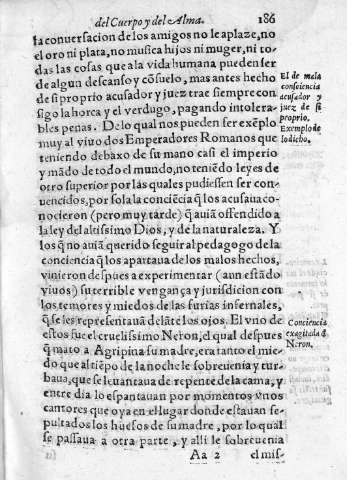 del Cuerpo y del Alma. 186
la conuersacion de los amigos no le aplaze, no
el oro ni plata, no musica hijos ni muger, ni to-
das las cosas que a la vida humana pueden ser
de algun descanso y cõsuelo, mas antes hecho
de si proprio acusador y juez trae siempre con
sigo la horca y el verdugo, pagando intolera-
bles penas. De lo qual nos pueden ser exẽplo
muy al viuo dos Emperadores Romanos que
teniendo debaxo de su mano casi el imperio
y mãdo de todo el mundo, no teniẽdo leyes de
otro superior por las quales pudiessen ser con-
uencidos, por sola la conciẽcia q̃ los acusaua co-
nocieron (pero muy tarde) q̃ auiã offendido a
la ley del altissimo Dios, y de la naturaleza. Y
los q̃ no auiã querido seguir al pedagogo de la
conciencia q̃ los apartaua de los malos hechos,
vinieron despues a experimentar (aun estãdo
viuos) su terrible vengança y jurisdicion con
los temores y miedos de las furias infernales,
q̃ se les representauã delãte los ojos. El vno de
estos fue el cruelissimo Neron, el qual despues
q̃ mato a Agripina su madre, era tanto el mie-
do que al tiẽpo de la noche le sobreuenia y tur-
baua, que se leuantaua de repente de la cama, y
entre dia lo espantauan por momentos vnos
cantores que oya en el lugar donde estauan se-
pultados los huesos de su madre, por lo qual
se passaua a otra parte, y alli le sobreuenia
Aa 2 el mis-
El de mala
consciencia
acusador y
juez de si
proprio.
Exemplo de
lo dicho.
Conciencia
exagitada d̃
Neron.